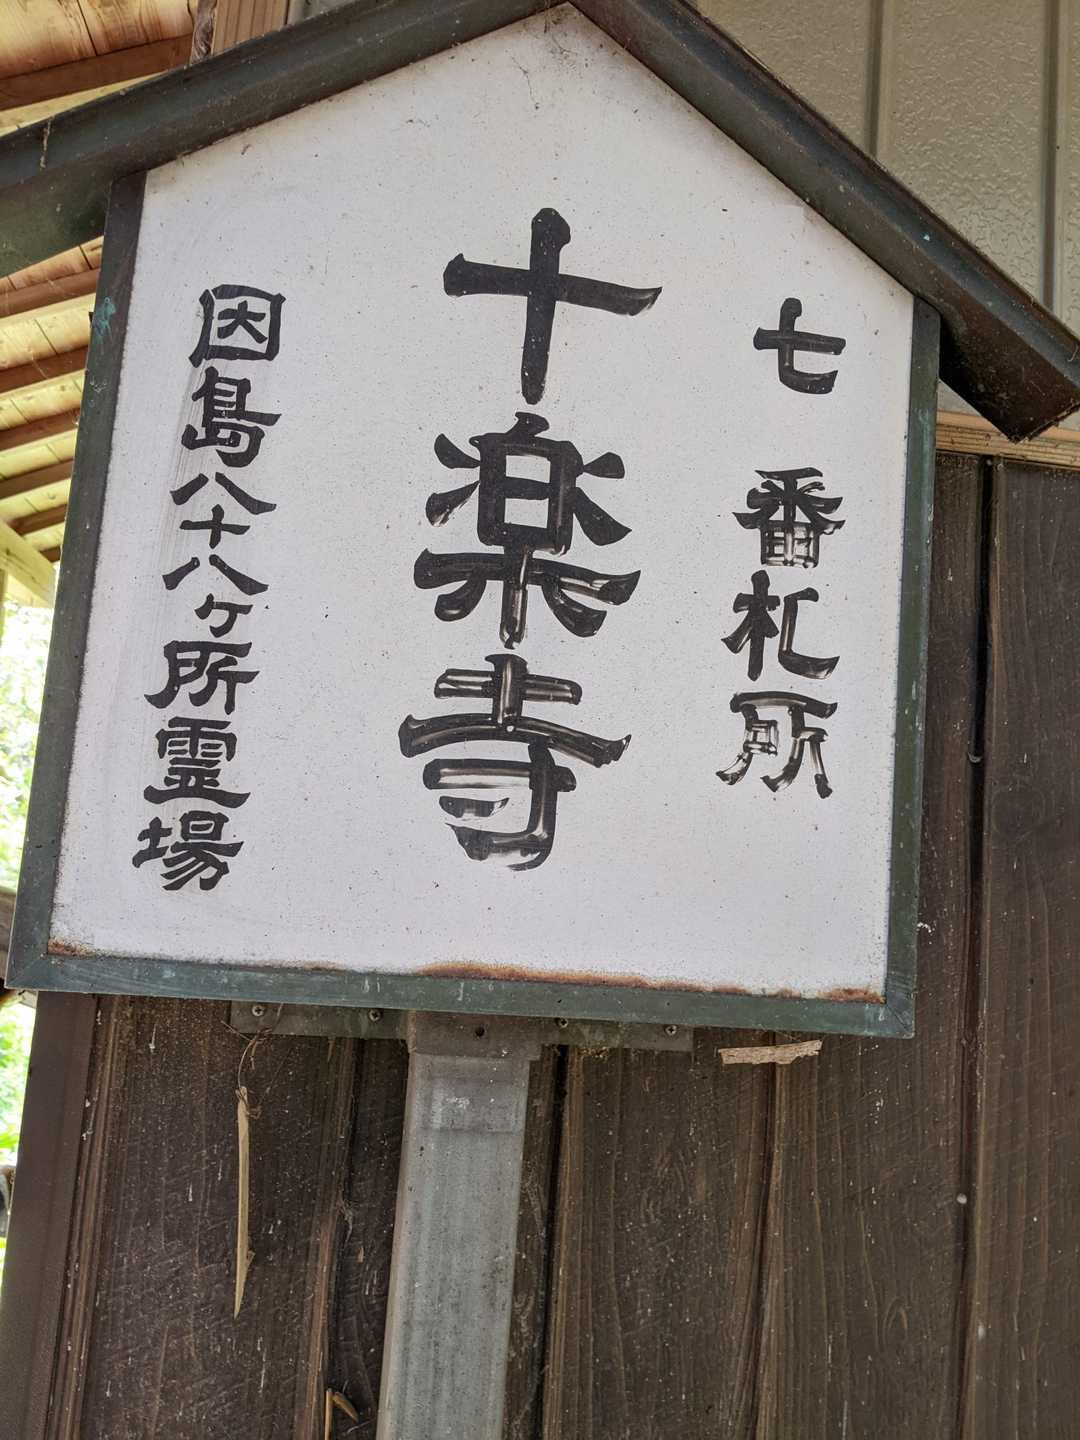 七番札所
十楽寺
因島八十八ヶ所霊場